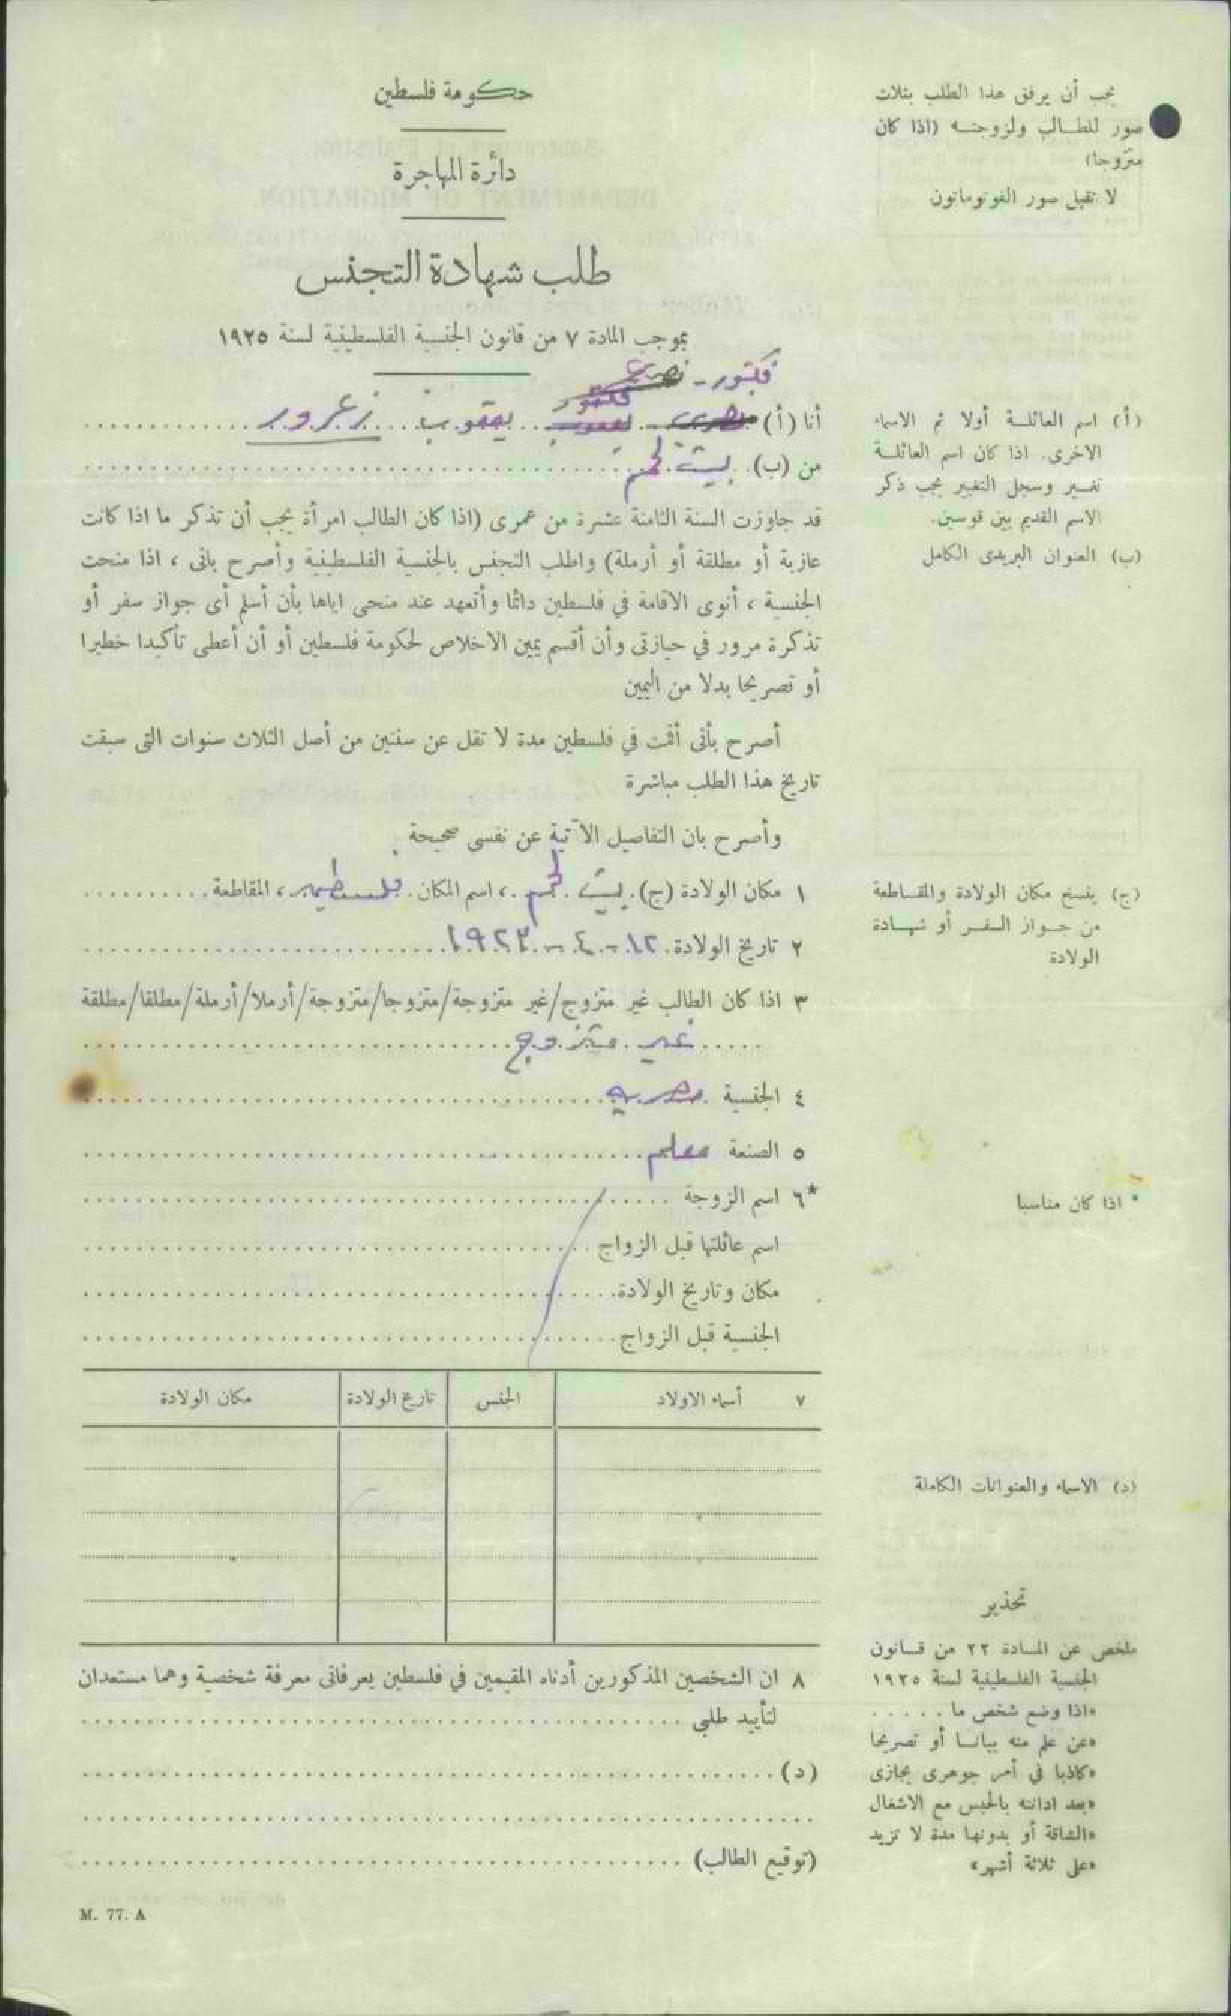 حكومة فلسطين
دائرة المهاجرة
طلب شهادة التجنس
بموجب المادة ٧ من قانون الجنسية الفلسطينية لسنة ١٩٢٥
يجب أن يرفق هذا الطلب بثلاث
صور للطالب ولزوجته (اذا كان
متزوجا)
لا تقبل صور الفوتوماتون
فكتور -
أنا (أ) يعقوب زعرور
من (ب) بيت لحم
(أ) اسم العائلة أولا ثم الاسماء
الاخرى. اذا كان اسم العائلة
تغير وسجل التغيير يجب ذكر
الاسم القديم بين قوسين.
(ب) العنوان البريدى الكامل
قد جاوزت السنة الثامنة عشرة من عمرى (اذا كان الطالب امرأة يجب أن تذكر ما اذا كانت
عازبة أو مطلقة أو أرملة) واطلب التجنس بالجنسية الفلسطينية وأصرح بانى ، اذا منحت
الجنسية ، أنوى الاقامة في فلسطين دائما وأتعهد عند منحى اياها بأن أسلم أى جواز سفر أو
تذكرة مرور في حيازتى وأن أقسم يمين الاخلاص لحكومة فلسطين أو أن أعطى تأكيدا خطيرا
أو تصريحا بدلا من اليمين
أصرح بأنى أقمت في فلسطين مدة لا تقل عن سنتين من أصل الثلاث سنوات التى سبقت
تاريخ هذا الطلب مباشرة
وأصرح بان التفاصيل الآتية عن نفسى صحيحة
١ مكان الولادة (ج) بيت لحم ، اسم المكان فلسطين ، المقاطعة
٢ تاريخ الولادة ١٢ - ٤ - ١٩٢٣
(ج) ينسخ مكان الولادة والمقاطعة
من جواز السفر أو شهادة
الولادة
٣ اذا كان الطالب غير متزوج/غير متزوجة/متزوجا/متزوجة/أرملا/أرملة/مطلقا/مطلقة
غير متزوج
٤ الجنسية مصريه
٥ الصنعة معلم
*٦ اسم الزوجة
* اذا كان مناسبا
اسم عائلتها قبل الزواج
مكان وتاريخ الولادة
الجنسية قبل الزواج
٧ أسماء الاولاد الجنس تاريخ الولادة مكان الولادة
(د) الاسماء والعنوانات الكاملة
٨ ان الشخصين المذكورين أدناه المقيمين في فلسطين يعرفانى معرفة شخصية وهما مستعدان
لتأييد طلبى
(د)
(توقيع الطالب)
تحذير
ملخص عن المادة ٢٢ من قانون
الجنسية الفلسطينية لسنة ١٩٢٥
«اذا وضع شخص ما . . . . .
«عن علم منه بيانا أو تصريحا
«كاذبا في أمر جوهرى يجازى
«بعد ادانته بالحبس مع الاشغال
«الشاقة أو بدونها مدة لا تزيد
«على ثلاثة أشهر»
M. 77. A